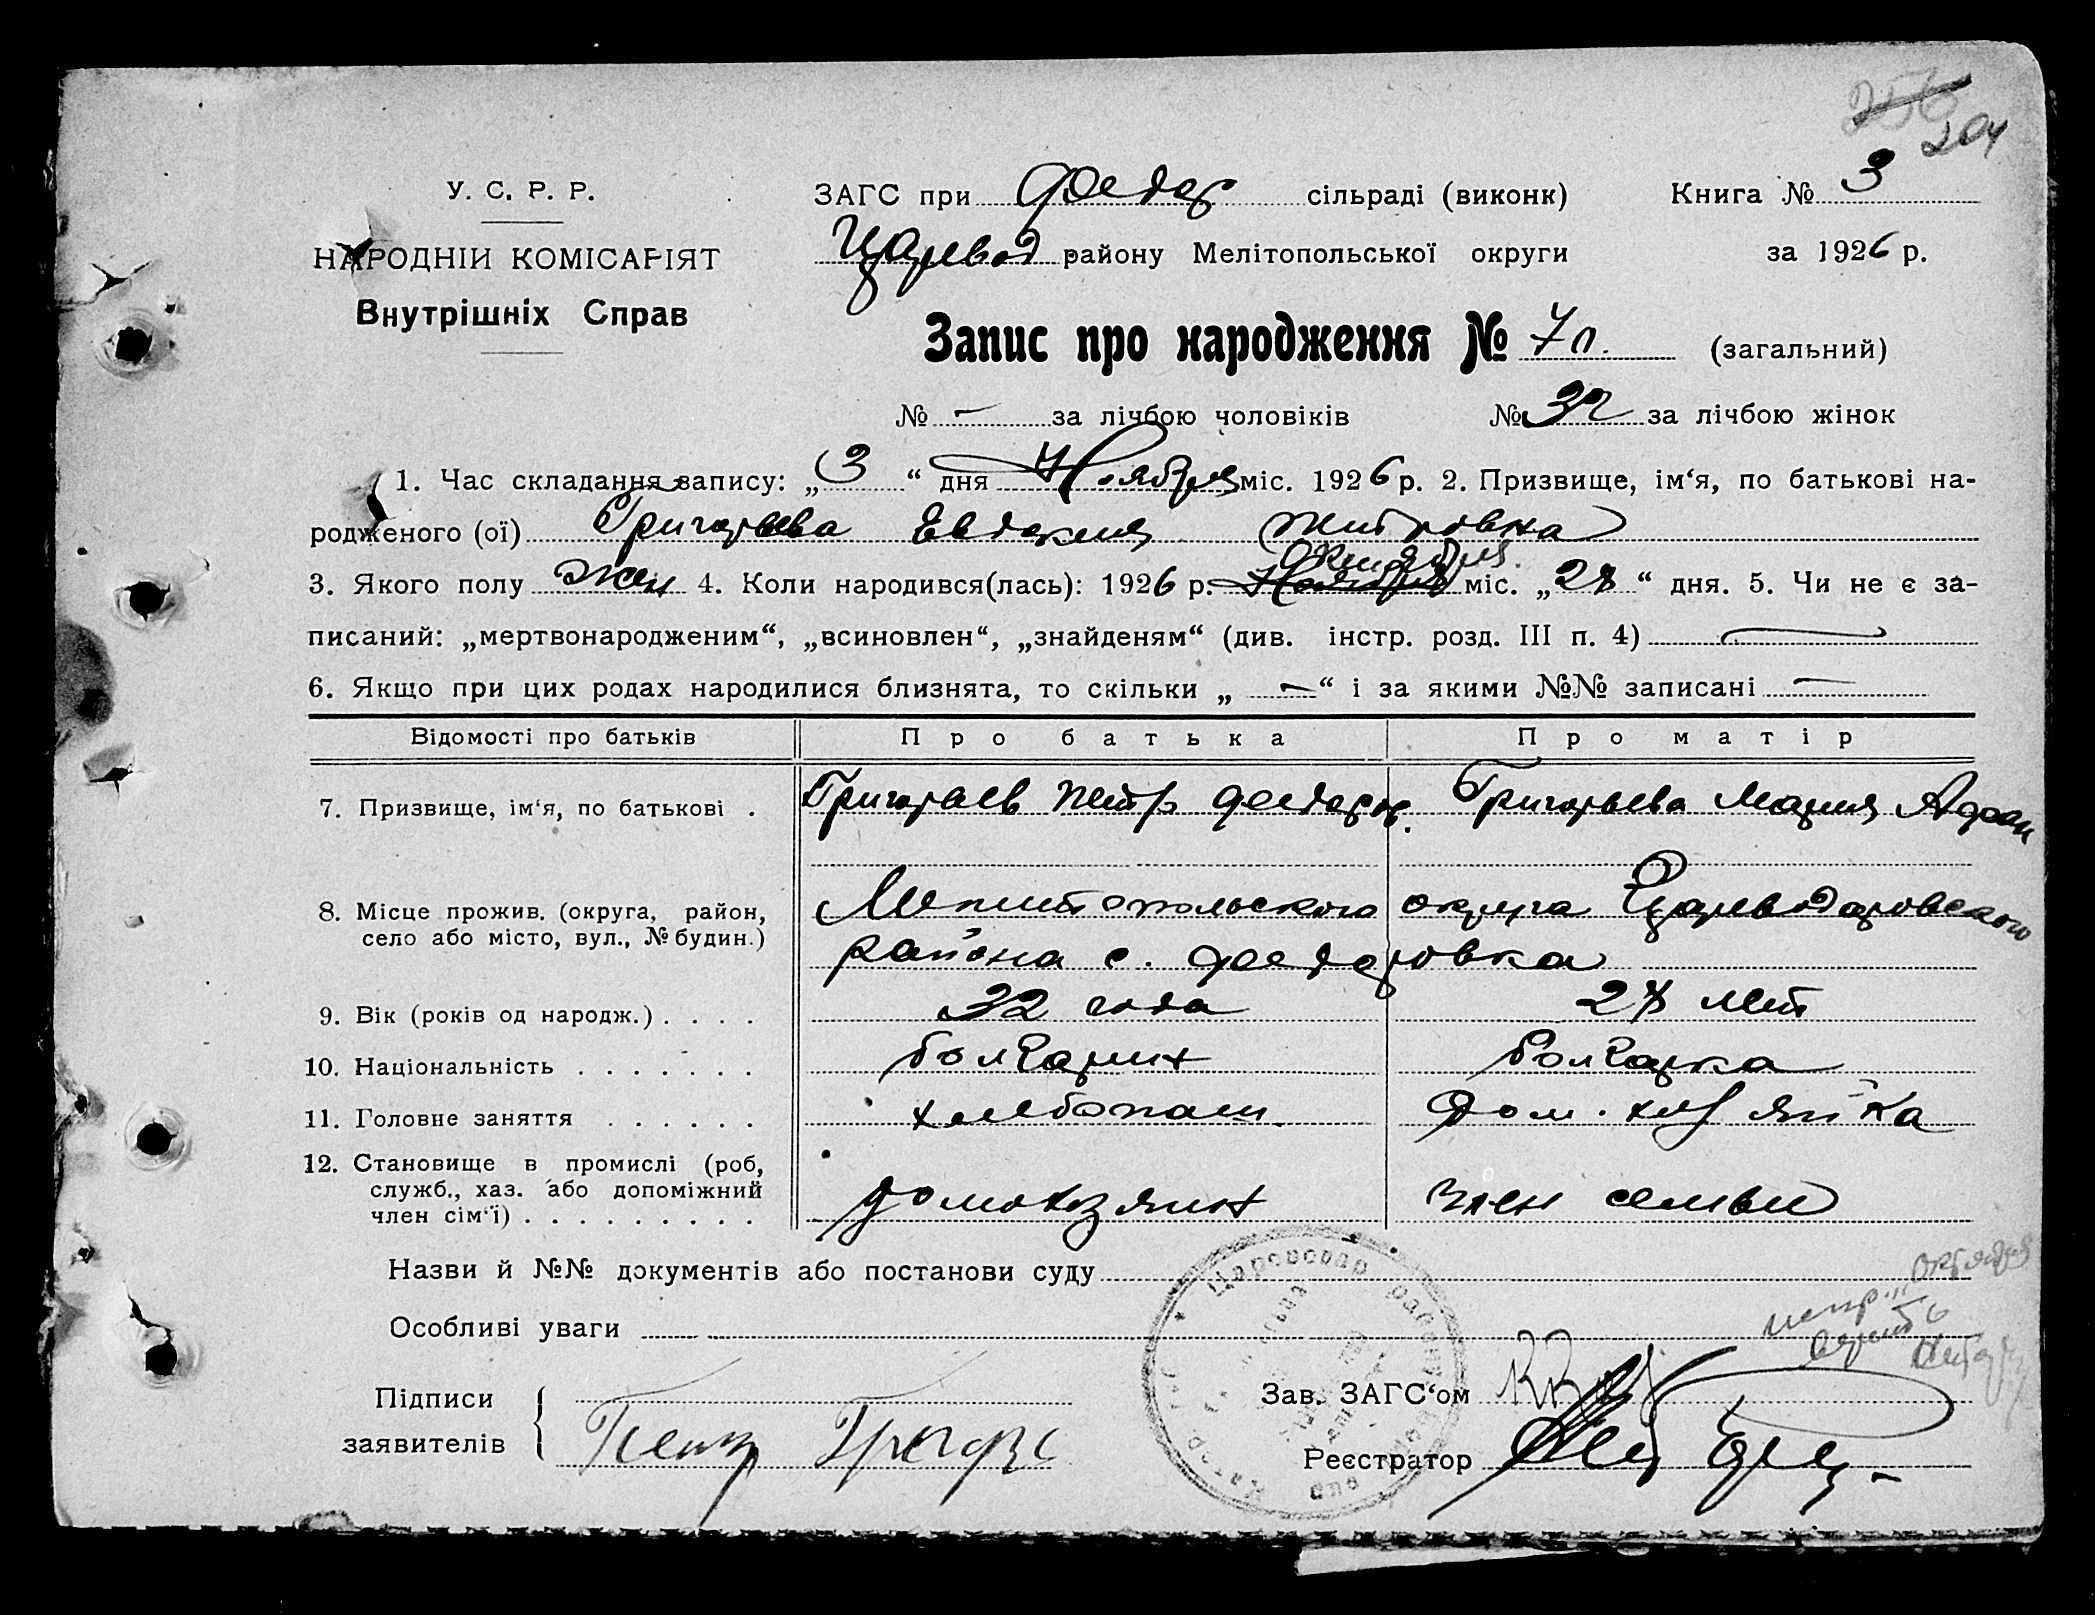 204
У. С. Р. Р.
ЗАГС при Федор сільраді (виконк) Книга № 3
НАРОДНІИ КОМІСАРІЯТ
Царевод району Мелітопольської округи за 1926 р.
Внутрішніх Справ
Запис про народження № 70. (загальний)
№ — за лічбою чоловіків № 32 за лічбою жінок
1. Час складання запису: „3“ дня Ноября міс. 1926 р. 2. Призвище, ім‘я, по батькові на-
родженого (ої) Григорьева Евдокия Питровна
Октября
3. Якого полу жен 4. Коли народився(лась): 1926 р. Ноября міс. „28“ дня. 5. Чи не є за-
писаний: „мертвонародженим“, „всиновлен“, „знайденям“ (див. інстр. розд. III п. 4) —
6. Якщо при цих родах народилися близнята, то скільки „ — “ і за якими №№ записані —
Відомості про батьків Про батька Про матір
7. Призвище, ім‘я, по батькові . Григорьев Петр Федоров. Григорьева Мария Афан
8. Місце прожив. (округа, район, Мелитопольского округа Цареводаровского
село або місто, вул., № будин.) района с. Федоровка
9. Вік (років од народж.) . . . . 32 года 28 лет
10. Національність . . . . . . . болгарин болгарка
11. Головне заняття . . . . . . хлебопаш. Дом. хозяйка
12. Становище в промислі (роб,
служб., хаз. або допоміжний домохозяин член семьи
член сім‘ї) . . . . . . . . .
Назви й №№ документів або постанови суду
октября
Особливі уваги
испр.
верить
Підписи
Зав. ЗАГС‘ом
заявителів Петр
Реєстратор